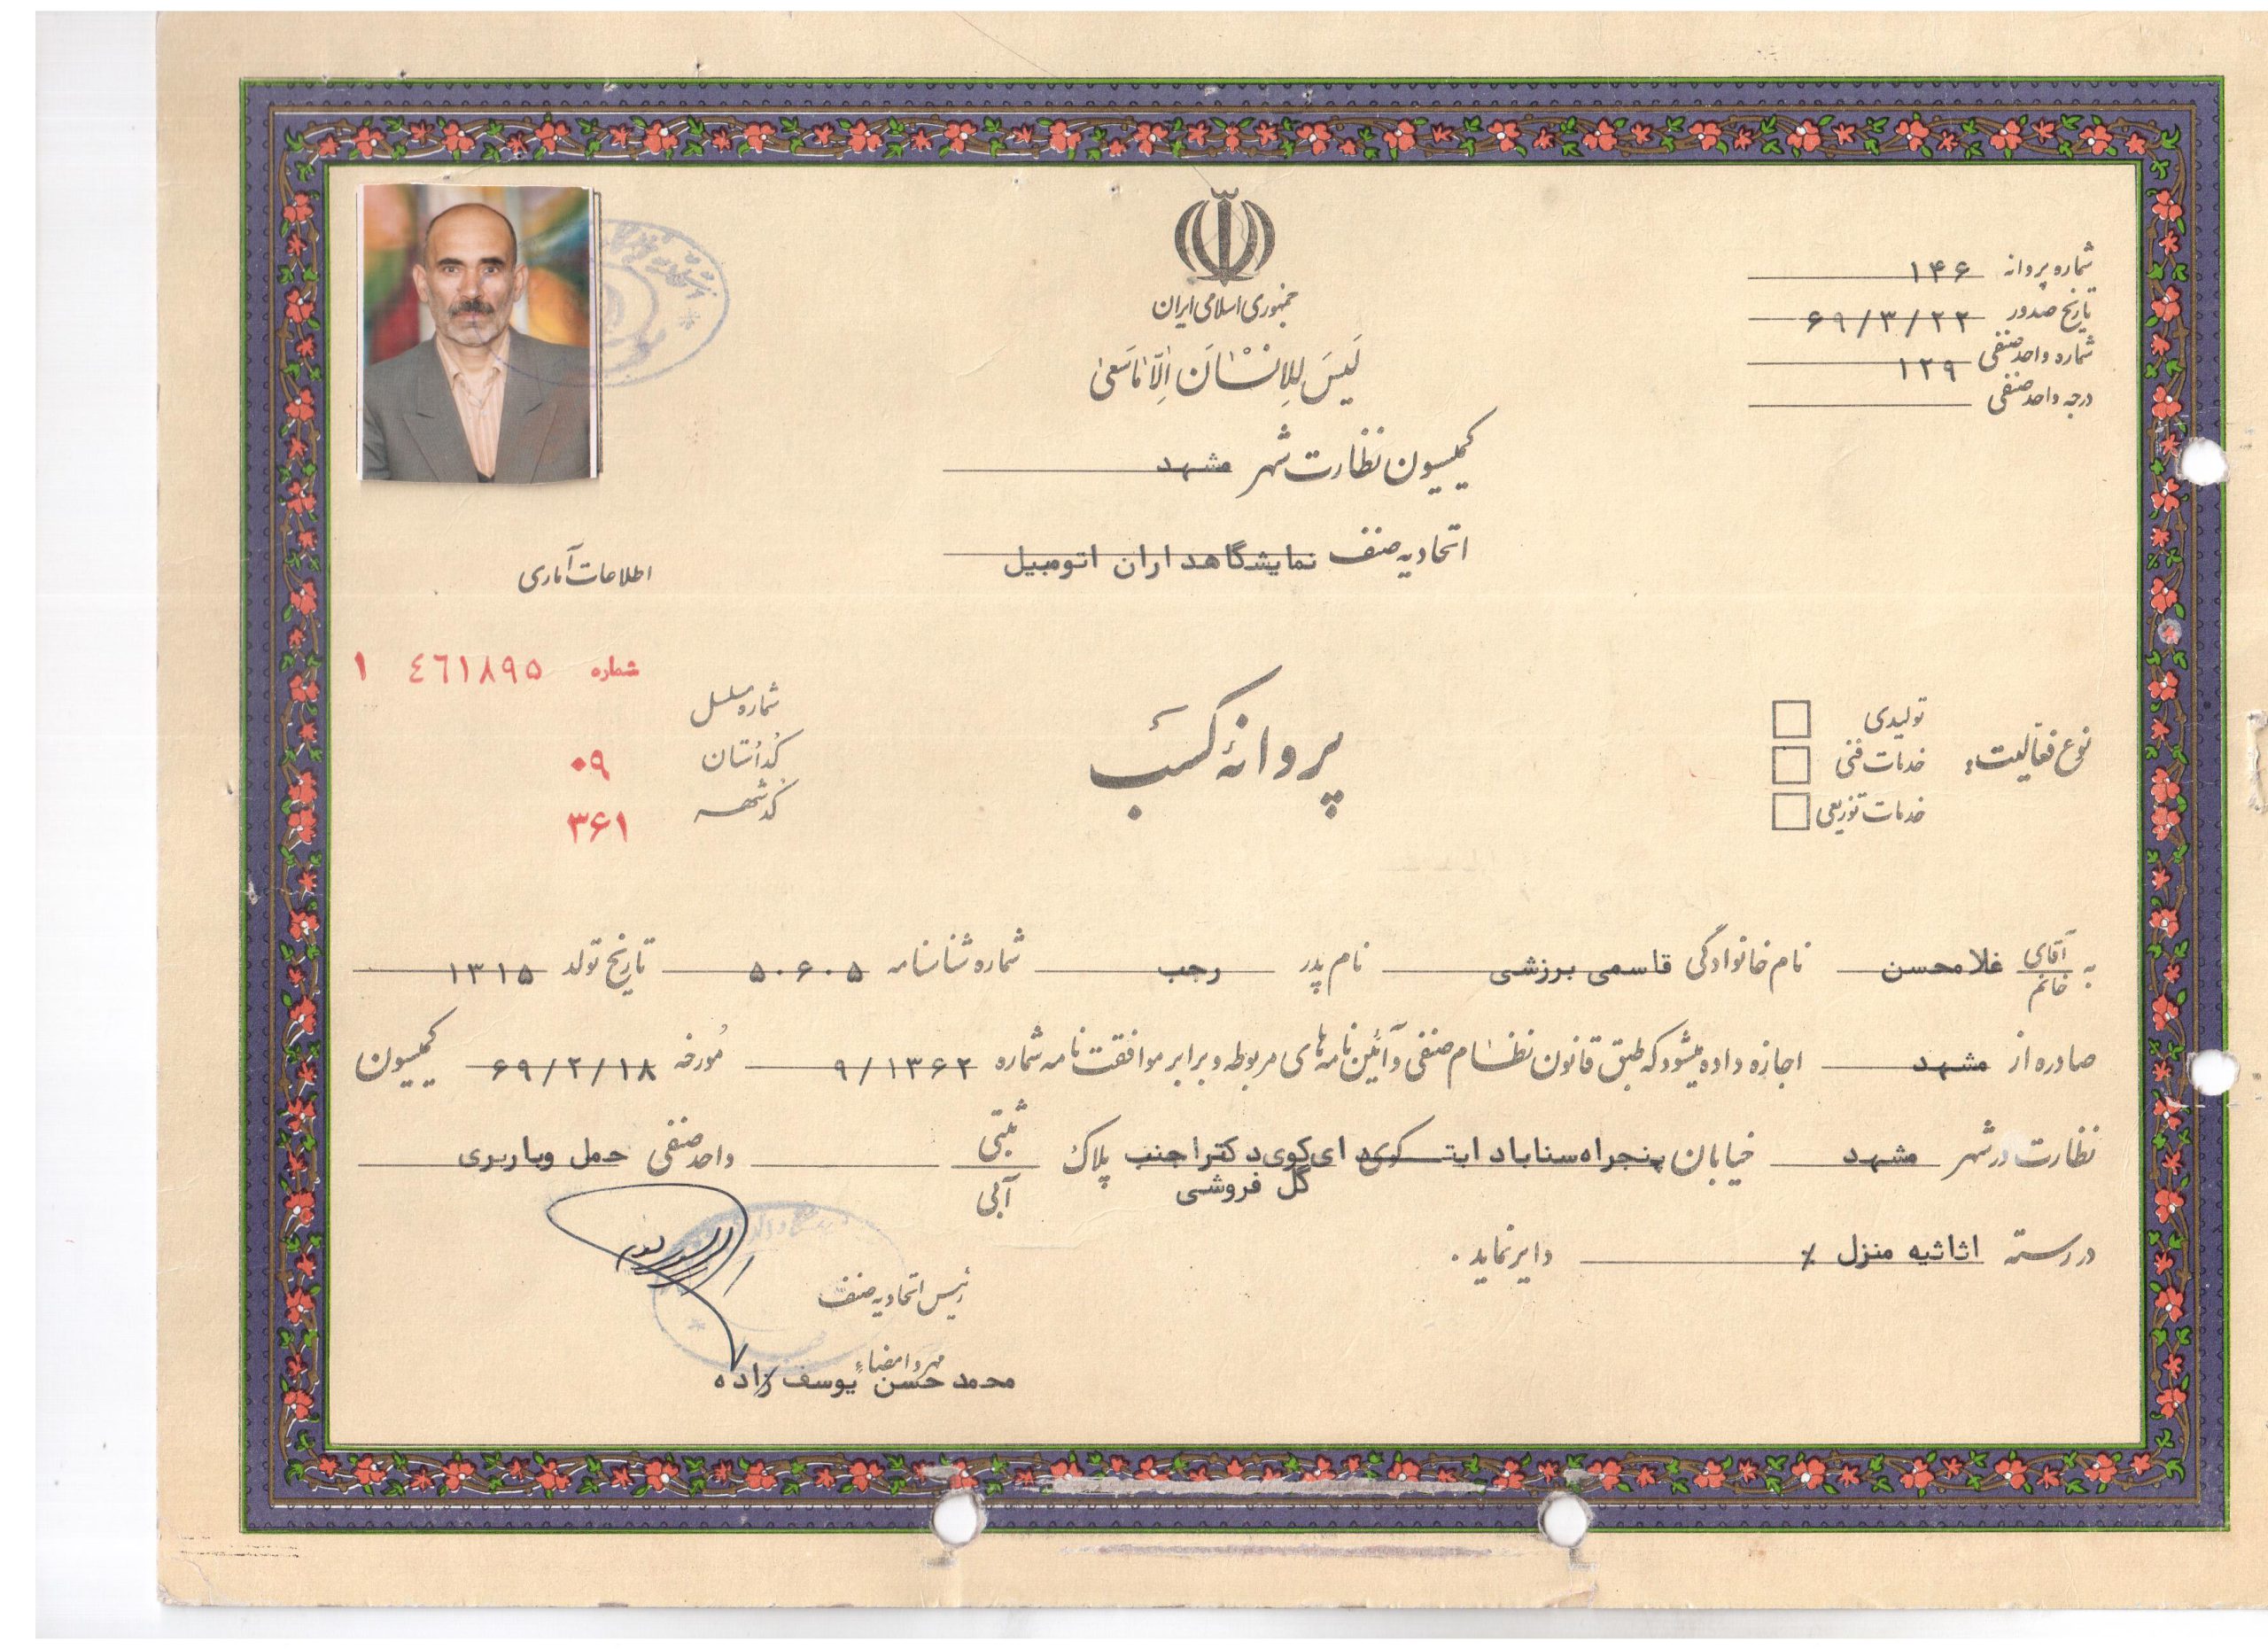 جمهوری اسلامی ایران
لَیسَ لِلاِنْسٰانَ اِلّاٰ مٰاسَعیٰ
شماره پروانه ۱۴۶
تاریخ صدور ۶۹/۳/۲۲
شماره واحد صنفی ۱۲۹
درجه واحد صنفی
کمیسیون نظارت شهر مشهد
اتحادیه صنف نمایشگاهداران اتومبیل
اطلاعات آماری
شماره ٤٦١٨٩٥ ١
شماره مسلسل
کد استان ۰۹
کد شهر ۳۶۱
پروانهٔ کسب
نوع فعالیت:
تولیدی
خدمات فنی
خدمات توزیعی
به آقای / خانم غلامحسن نام خانوادگی قاسمی برزشی نام پدر رجب شماره شناسنامه ۵۰۶۰۵ تاریخ تولد ۱۳۱۵
صادره از مشهد اجازه داده میشود که طبق قانون نظام صنفی و آئین نامه های مربوطه و برابر موافقت نامه شماره ۹/۱۳۶۲ مورخه ۶۹/۲/۱۸ کمیسیون
نظارت در شهر مشهد خیابان پنجراه سناباد ابتدای کوی دکترا جنب گل فروشی پلاک ثبتی / آبی واحد صنفی حمل وباربری
در رسته اثاثیه منزل ٪ دایر نماید.
رئیس اتحادیه صنف
مهر و امضاء
محمد حسن یوسف زاده